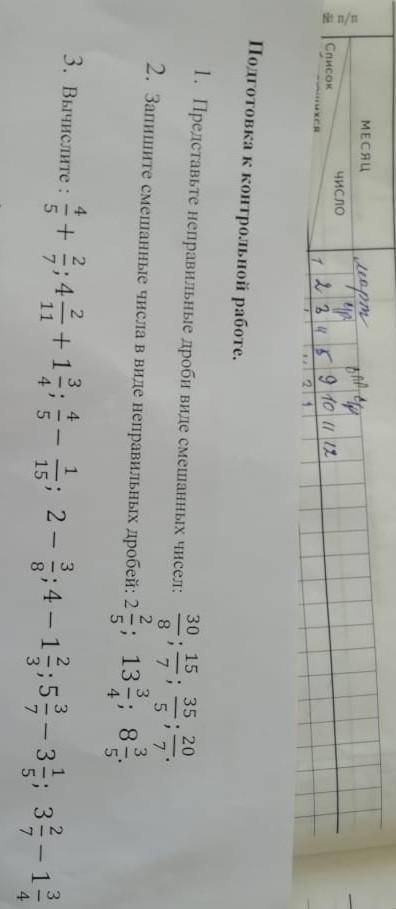 МЕСЯЦ март
№ п/п Список ЧИСЛО 1 2 3 4 5 9 10 11 12
Подготовка к контрольной работе.
1. Представьте неправильные дроби виде смешанных чисел: 30/8; 15/7; 35/5; 20/7.
2. Запишите смешанные числа в виде неправильных дробей: 2 2/5; 13 3/4; 8 3/5.
3. Вычислите : 4/5 + 2/7; 4 2/11 + 1 3/4; 4/5 − 1/15; 2 − 3/8; 4 − 1 2/3; 5 3/7 − 3 1/5; 3 2/7 − 1 3/4